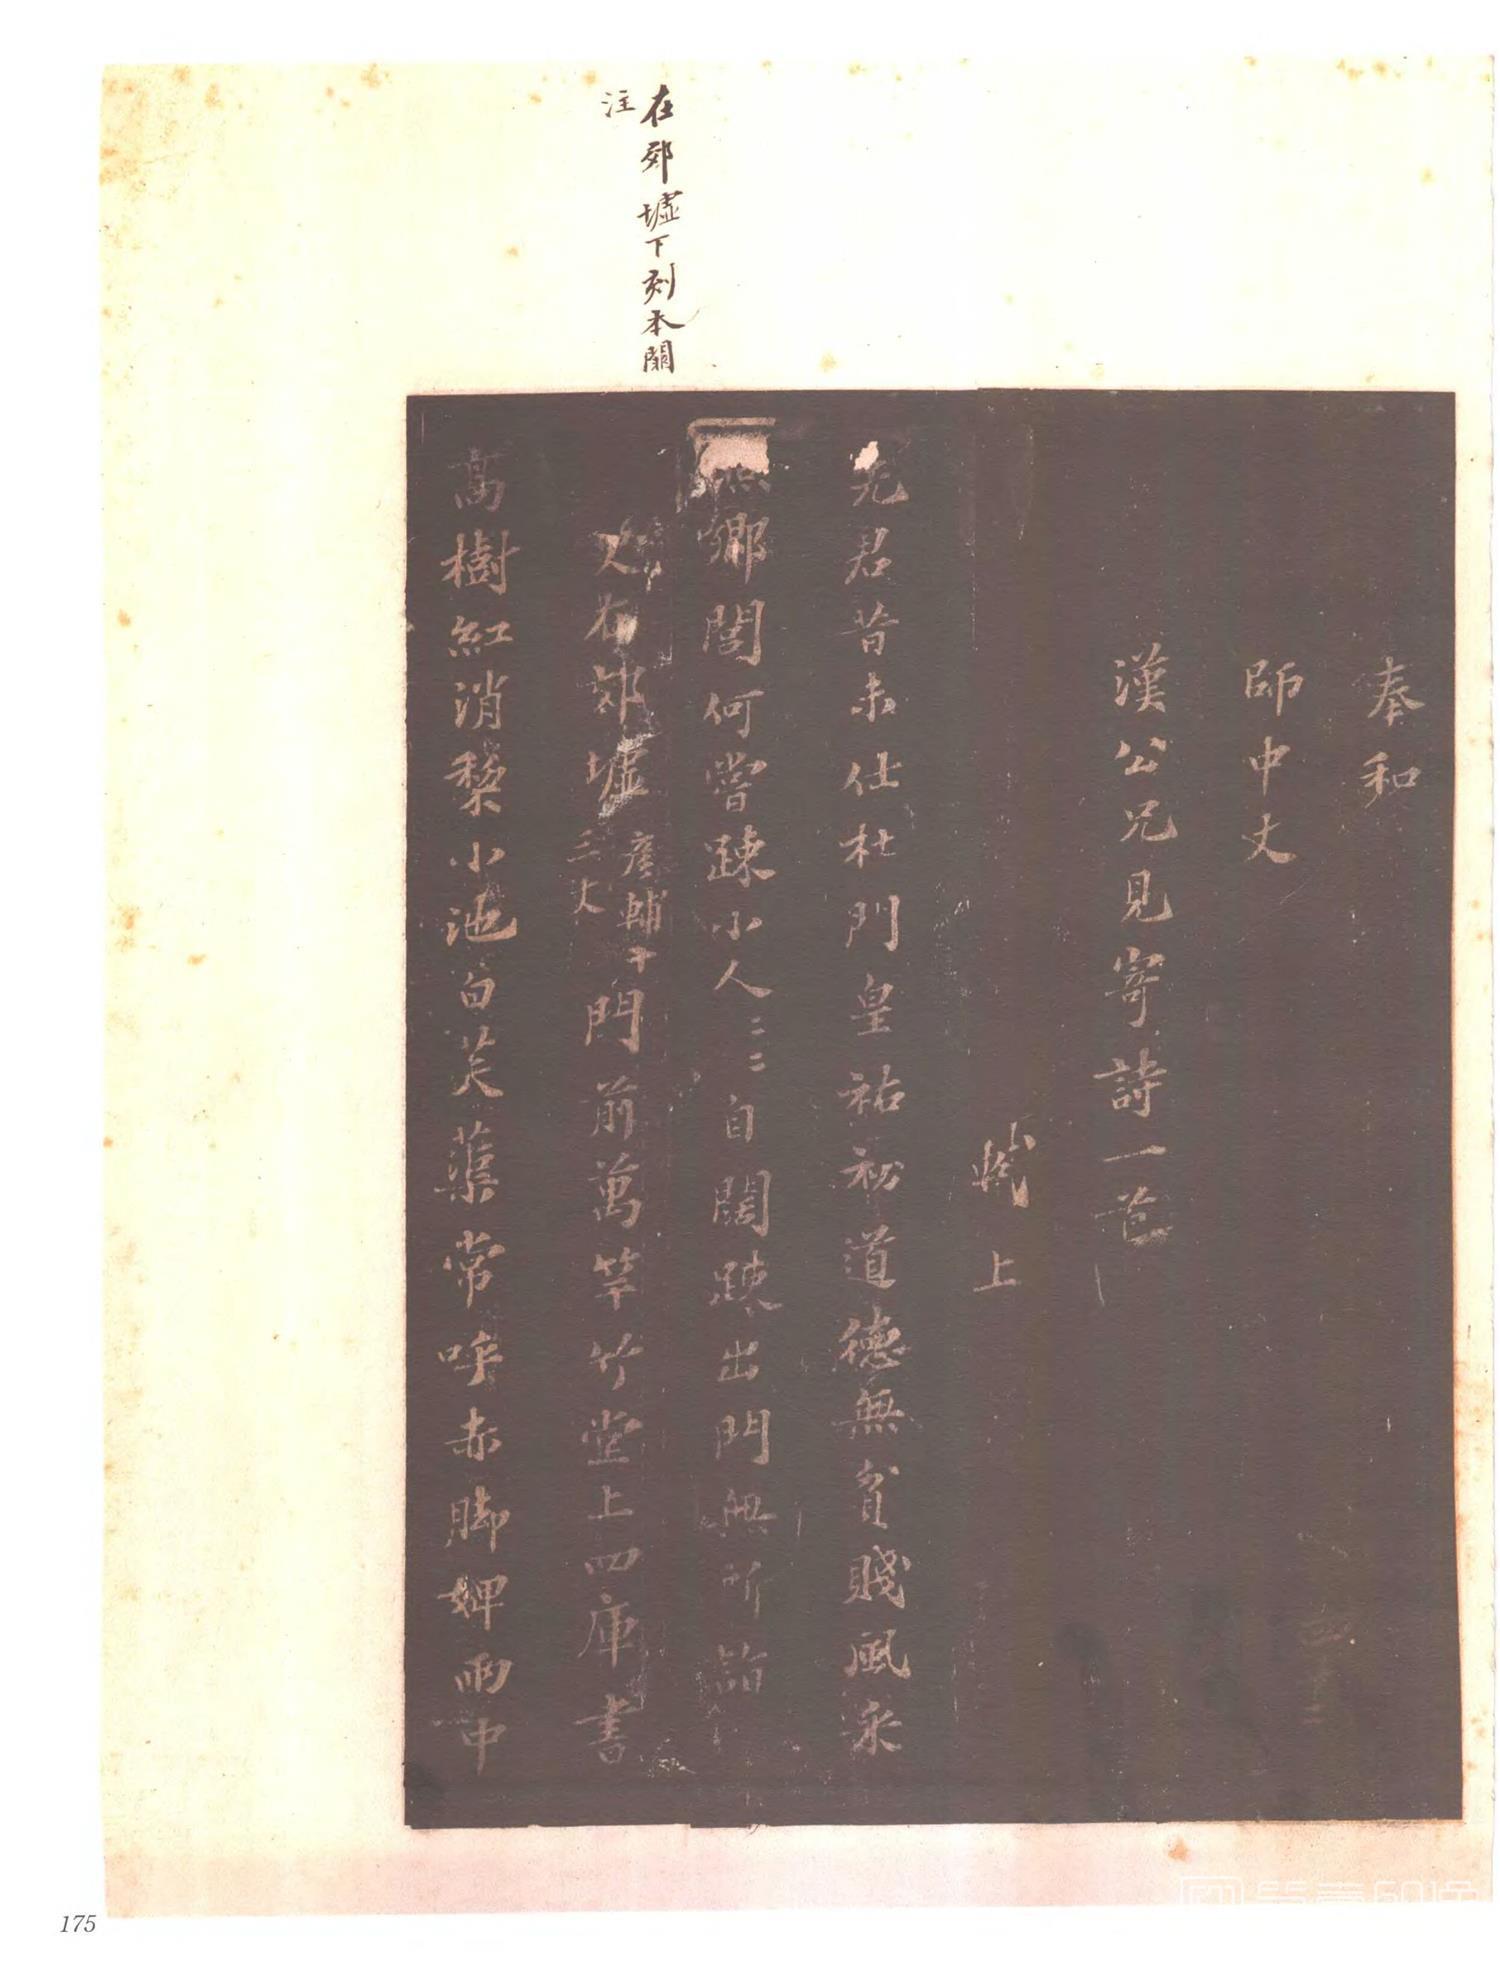 在郊墟下刻本闕
注
奉和
師中丈
漢公兄見寄詩一首
軾上
先君昔未仕杜門皇祐初道德無貧賤風采
照鄉閭何嘗踈小人〻〻自闊踈出門無所詣
史在郊墟彥輔十三丈門前萬竿竹堂上四庫書
高樹紅消棃小池白芙蕖常呼赤脚婢雨中
175